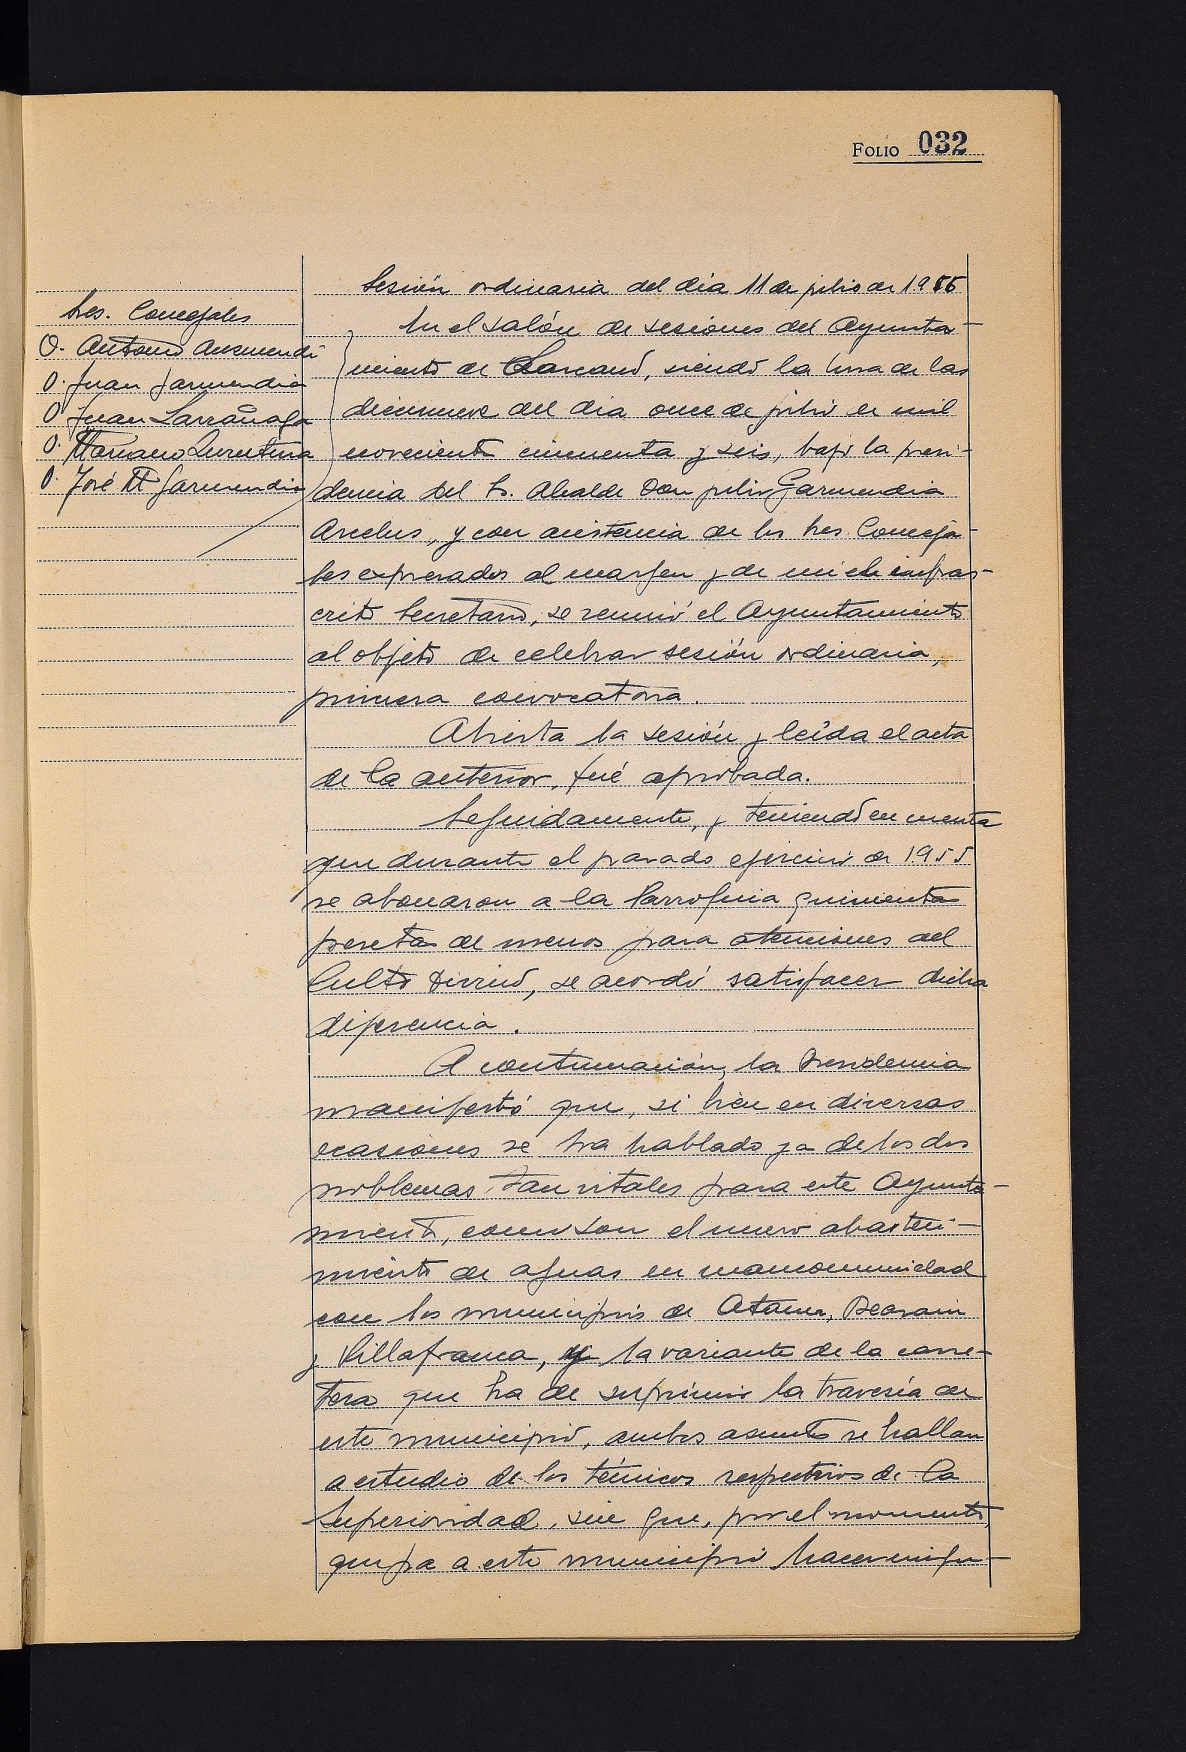 FOLIO 032
Sesión ordinaria del dia 11 de julio de 1956
Sres. Concejales
D. Antonio Auzmendi
D. Juan Garmendia
D. Juan Larrañaga
D. Mariano Querutena
D. José Mª Garmendia
En el salón de sesiones del Ayunta-
miento de Lazcano, siendo la hora de las
diecinueve del dia once de julio de mil
novecientos cincuenta y seis, bajo la presi-
dencia del Sr. Alcalde Don Julio Garmendia
Arcelus, y con asistencia de los Sres. Conceja-
les expresados al margen y de mi el infras-
crito Secretario, se reunió el Ayuntamiento
al objeto de celebrar sesión ordinaria,
primera convocatoria.
Abierta la sesión y leída el acta
de la anterior, fué aprobada.
Seguidamente, y teniendo en cuenta
que durante el pasado ejercicio de 1955
se abonaron a la Parroquia quinientas
pesetas de menos para atenciones del
Culto Divino, se acordó satisfacer dicha
diferencia.
A continuación, la Presidencia
manifestó que, si bien en diversas
ocasiones se ha hablado ya de los dos
problemas tan vitales para este Ayunta-
miento, como son el nuevo abasteci-
miento de aguas en mancomunidad
con los municipios de Ataun, Beasain
y Villafranca, y la variante de la carre-
tera que ha de suprimir la travesía de
este municipio, ambos asuntos se hallan
a estudio de los técnicos respectivos de la
Superioridad, sin que, por el momento,
quepa a este municipio hacer ningu-